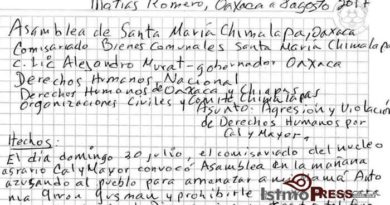 Matías Romero, Oaxaca a 8 agosto, 2017
Asamblea de Santa María Chimalapa, Oaxaca
Comisariado Bienes Comunales Santa María Chimalapa
c. Lic Alejandro Murat - gobernador Oaxaca
Derechos Humanos, Nacional
Derechos Humanos de Oaxaca y Chiapas
organizaciones Civiles y Comité Chimalapas
Asunto: Agresión y Violación
de Derechos Humanos por
Cal y Mayor.
Hechos:
El día domingo 30 julio, el comisariado del nucleo
agrario Cal y Mayor convocó Asamblea en la mañana
azuzando al pueblo para amenazar a mi
Guzman y prohibirle
IstmoPress